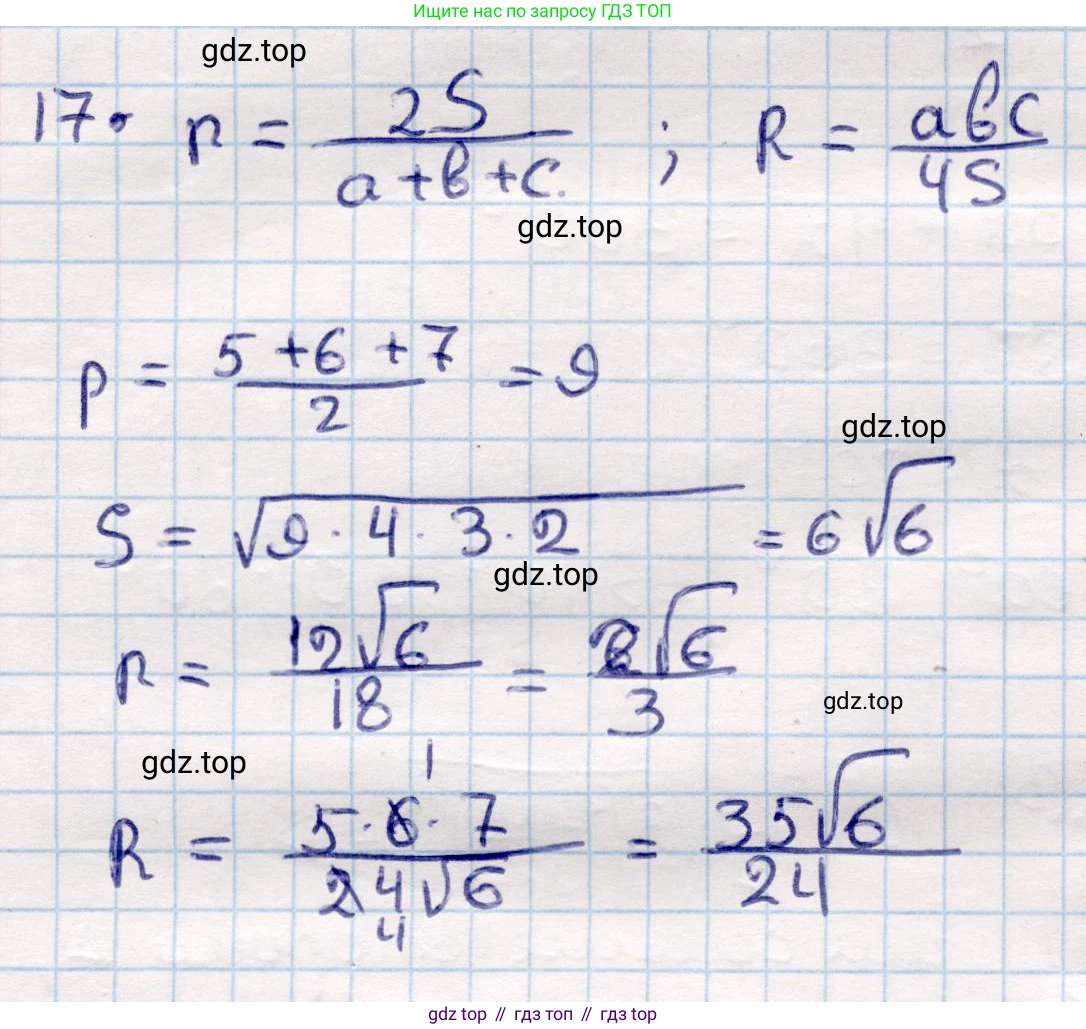 Ищите нас по запросу ГДЗ ТОП
gdz.top
17. r = 2S / (a + b + c) ; R = abc / 4S
gdz.top
p = (5 + 6 + 7) / 2 = 9
gdz.top
S = √(9 · 4 · 3 · 2) = 6√6
gdz.top
r = 12√6 / 18 = 2√6 / 3
gdz.top
gdz.top
1
R = 5 · 6 · 7 / 24√6 = 35√6 / 24
4
gdz.top // гдз топ // гдз top